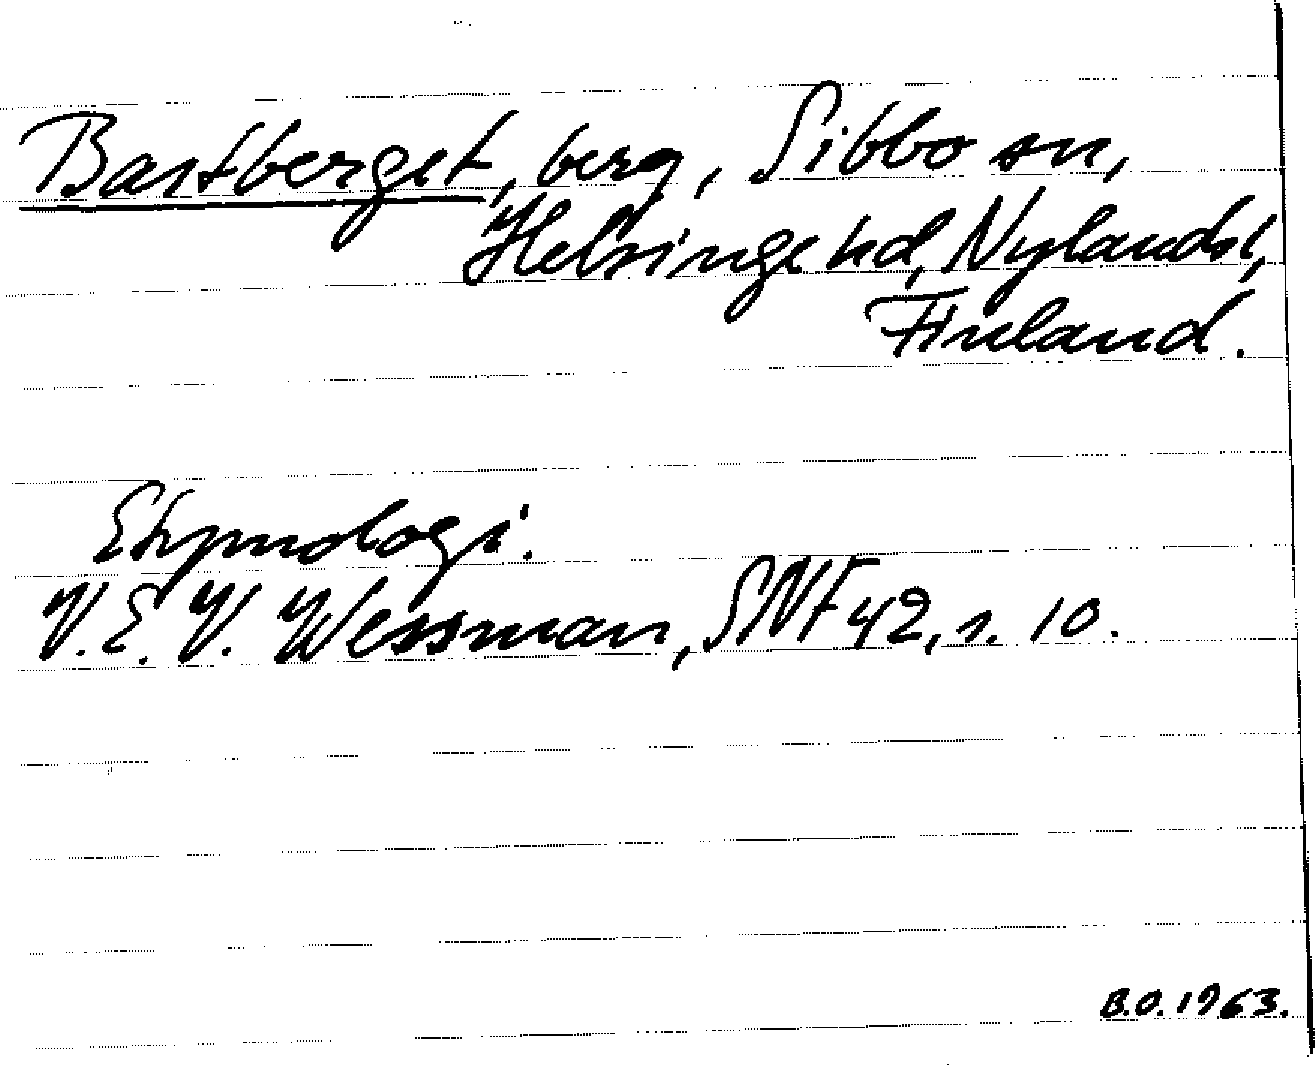 Bastberget, berg, Sibbo sn,
Helsinge hd, Nylands l,
Finland.
Etymologi:
V.E.V. Wessman, SNF 42, s. 10.
B.O. 1963.